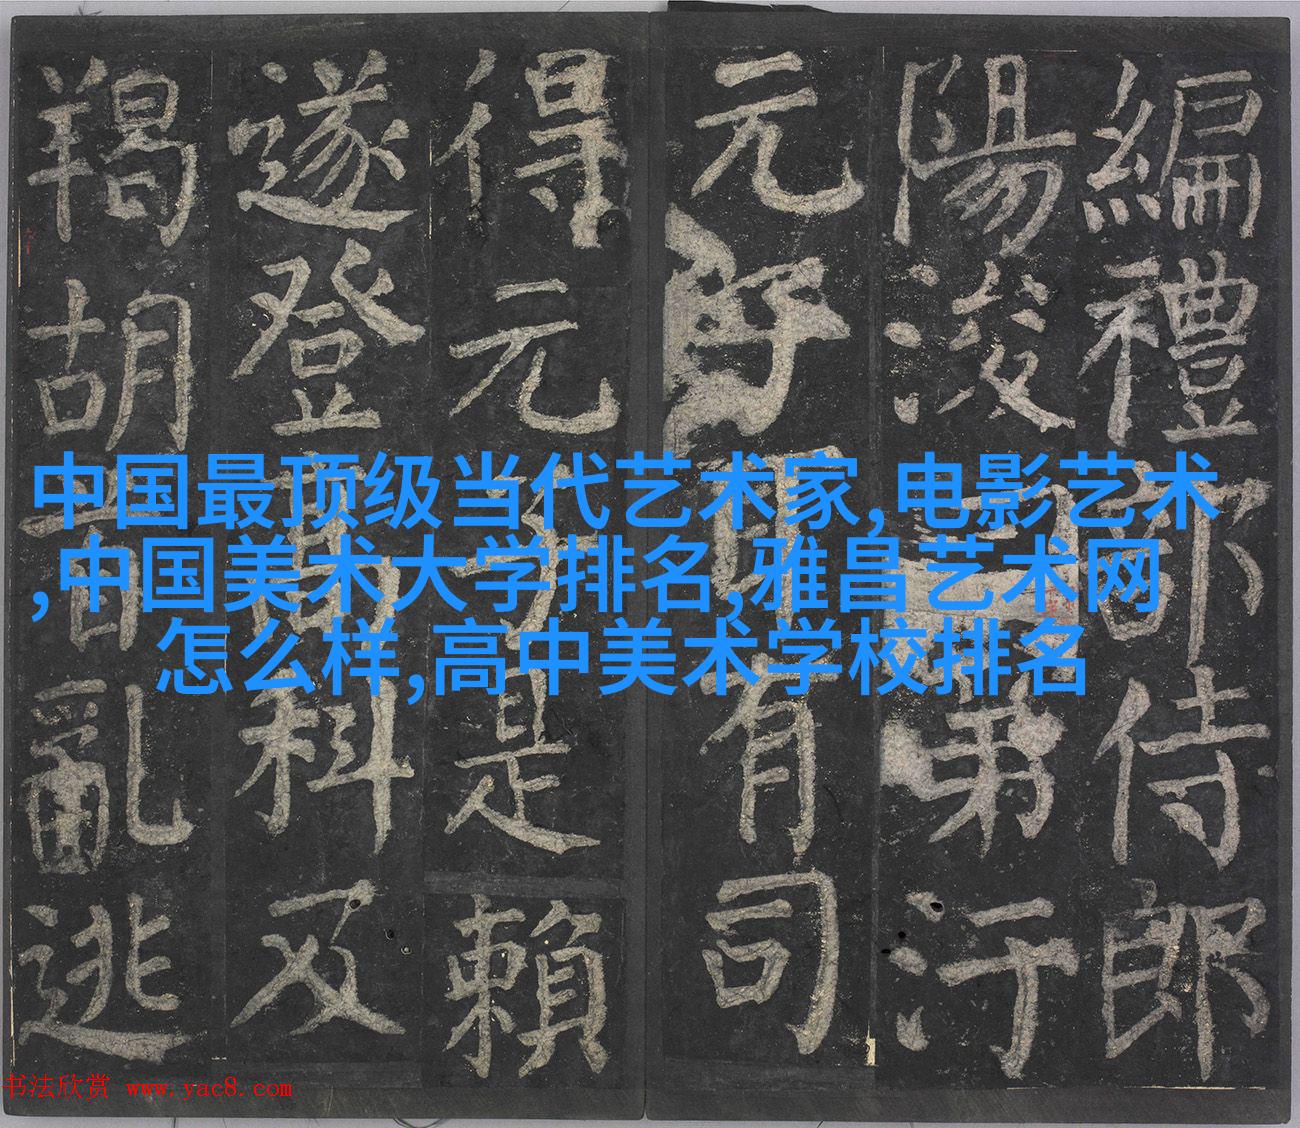 編禮部侍郎
陽浚弟汙
元子有司
得元子是賴
遂登高科及
羯胡首亂逃
中国最顶级当代艺术家,电影艺术
,中国美术大学排名,雅昌艺术网
怎么样,高中美术学校排名
书法欣赏 www.yac8.com